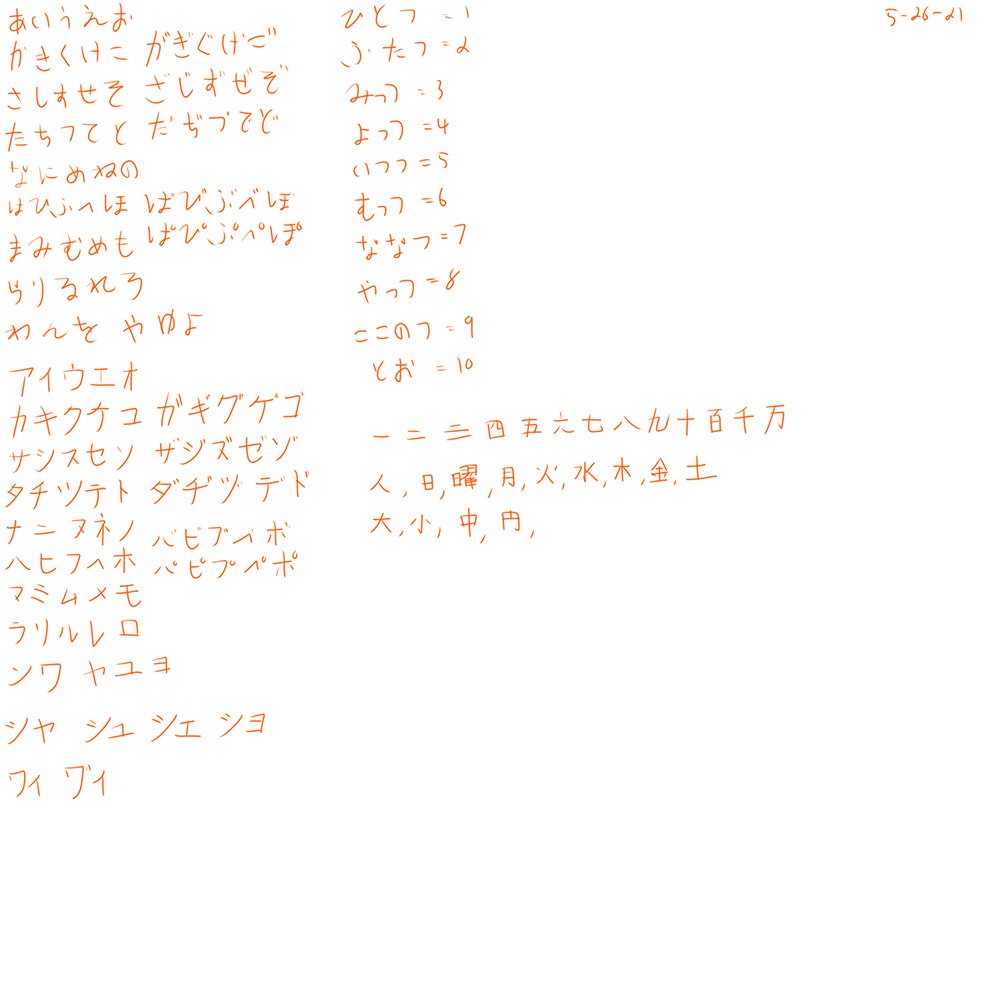 あいうえお
かきくけこ がぎぐげご
さしすせそ ざじずぜぞ
たちつてと だぢづでど
なにぬねの
はひふへほ ばびぶべぼ
まみむめも ぱぴぷぺぽ
らりるれろ
わんを やゆよ
アイウエオ
カキクケコ ガギグゲゴ
サシスセソ ザジズゼゾ
タチツテト ダヂヅデド
ナニヌネノ
ハヒフヘホ バビブベボ
マミムメモ パピプペポ
ラリルレロ
ンワ ヤユヨ
シャ シュ シェ ショ
ワィ ヷィ
ひとつ = 1
ふたつ = 2
みっつ = 3
よっつ = 4
いつつ = 5
むっつ = 6
ななつ = 7
やっつ = 8
ここのつ = 9
とお = 10
一二三四五六七八九十百千万
人,日,曜,月,火,水,木,金,土
大,小,中,円,
5-26-21